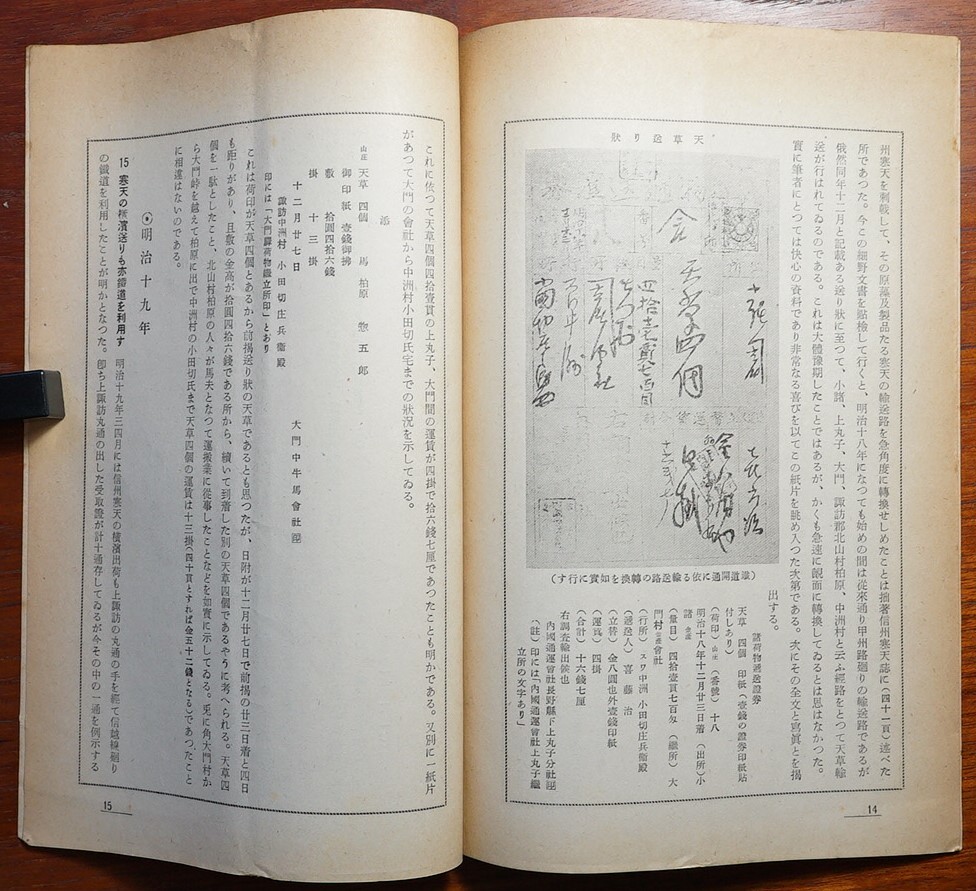 州寒天を刺載して、その原藻及製品たる寒天の輸送路を急角度に轉換せしめたことは拙著信州寒天誌に(四十一頁)述べた
所であつた。今この細野文書を點檢して行くと、明治十八年になつても始めの間は從來通り甲州路廻りの輸送路であるが
俄然同年十二月と記載ある送り狀に至つて、小諸、上丸子、大門、諏訪郡北山村柏原、中洲村と云ふ經路をとつて天草輸
送が行はれてゐるのである。これは大體豫期したことではあるが、かくも急速に覿面に轉換してゐるとは思はなかつた。
實に筆者にとつては快心の資料であり非常なる喜びを以てこの紙片を眺め入つた次第である。次にその全文と寫眞とを揭
出する。
天草送り狀
(鐵道開通に依る輸送路の轉換を如實に行す)
諸荷物遞送證券
天草 四個 印紙(壹錢の證券印紙貼
付しあり)
(荷印)山庄(番號)十八
明治十八年十二月廿三日着(出所)小
諸
(量目) 四拾壹貫七百匁 (繼所)大
門村 會社
(行所) スワ中洲 小田切庄兵衞殿
(遞送人) 喜藤治
(立替) 金八圓也外壹錢印紙
(運賃) 四掛
(合計) 十六錢七厘
右調査輸出候也
內國通運會社長野縣下上丸子分社㊞
(註)印には「內國通運會社上丸子繼
立所の文字あり」
14
これに依つて天草四個四拾壹貫の上丸子、大門間の運賃が四掛で拾六錢七厘であつたことも明かである。又別に一紙片
があつて大門の會社から中洲村小田切氏宅までの狀況を示してゐる。
添
山庄 天草 四個 馬 柏原 惣五郎
御印紙 壹錢御拂
敷 拾圓四拾六錢
掛 十三掛
十二月廿七日
大門中牛馬會社㊞
諏訪中洲村 小田切庄兵衞殿
印には「大門驛荷物繼立所印」とあり
これは荷印が天草四個とあるから前揭送り狀の天草であるとも思つたが、日附が十二月廿七日で前揭の廿三日着と四日
も距りがあり、且敷の金高が拾圓四拾六錢である所から、續いて到着した別の天草四個であるやうに考へられる。天草四
個を一駄としたこと、北山村柏原の人々が馬夫となつて運搬業に從事したことなどを如實に示してゐる。兎に角大門村か
ら大門峠を越えて柏原に出で中洲村の小田切氏まで天草四個の運賃は十三掛(四十貫とすれば金五十二錢となる)であつたこと
に相違はないのである。
◉明治十九年
15 寒天の橫濱送りも亦鐵道を利用す
明治十九年三四月には信州寒天の橫濱出荷も上諏訪の丸通の手を經て信越線廻り
の鐵道を利用したことが明かとなつた。卽ち上諏訪丸通の出した受取證が計十通存してゐるが今その中の一通を例示する
15